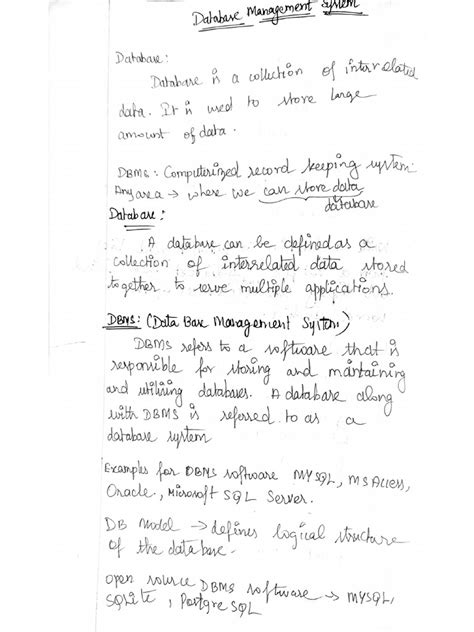 Database Management System
Database:
Database is a collection of interrelated
data. It is used to store large
amount of data.
DBMS: Computerized record keeping system.
Any area → where we can store data
database
Database:
A database can be defined as a
collection of interrelated data stored
together to serve multiple applications.
DBMS: (Data Base Management System)
DBMS refers to a software that is
responsible for storing and maintaining
and utilising databases. A database along
with DBMS is referred to as a
database system
Examples for DBMS software MYSQL, MS Access,
Oracle, Microsoft SQL Server.
DB Model → defines logical structure
of the database.
open source DBMS software → MYSQL,
SQLite, PostgreSQL